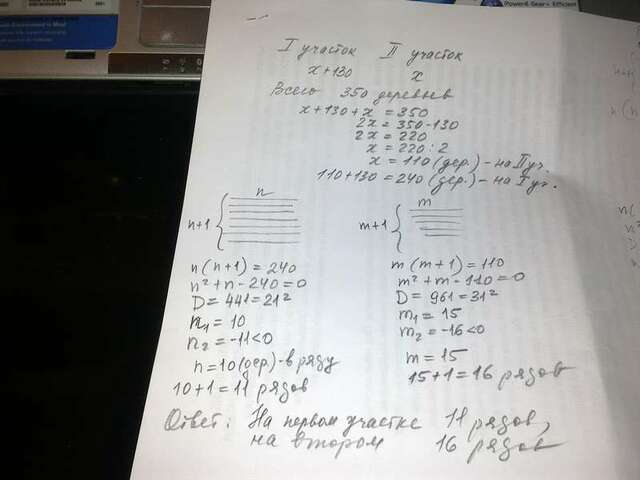 I участок II участок
x+130 x
Всего 350 деревьев
x+130+x = 350
2x = 350-130
2x = 220
x = 220:2
x = 110 (дер.) - на II уч.
110+130 = 240 (дер.) - на I уч.
n
n+1
n(n+1) = 240
n²+n-240=0
D = 441 = 21²
n₁ = 10
n₂ = -11<0
n = 10 (дер.) - в ряду
10+1 = 11 рядов
m
m+1
m(m+1) = 110
m²+m-110=0
D = 961 = 31²
m₁ = 15
m₂ = -16<0
m = 15
15+1 = 16 рядов
Ответ: На первом участке 11 рядов,
на втором 16 рядов